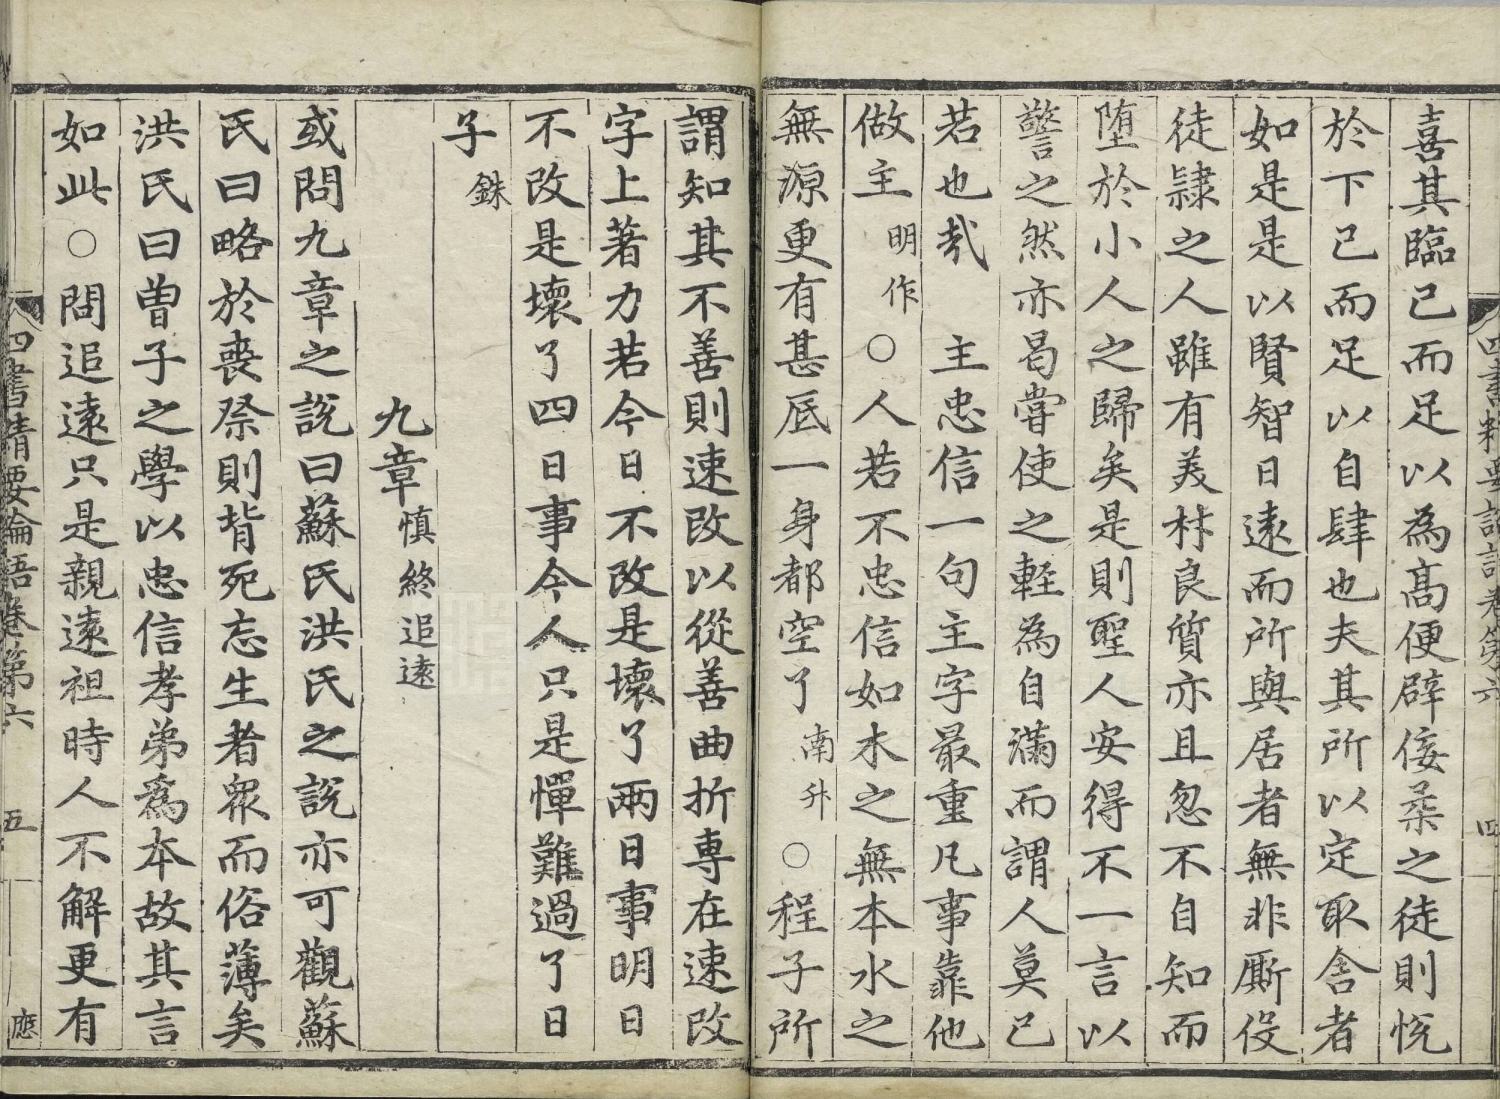 喜其臨己而足以為高便辟侫柔之徒則恱
於下己而足以自肆也夫其所以定取舍者
如是是以賢智日遠而所與居者無非厮役
徒隷之人雖有美材良質亦且忽不自知而
堕於小人之歸矣是則聖人安得不一言以
警之然亦曷嘗使之輊為自滿而謂人莫己
若也哉　主忠信一句主字最重凡事靠他
做主明作○人若不忠信如木之無本水之
無源更有甚底一身都空了南升○程子所
四書精要論語卷第六　四
謂知其不善則速改以從善曲折専在速改
字上著力若今日不改是壞了兩日事明日
不改是壞了四日事今人只是憚難過了日
子銖
九章慎終追逺
或問九章之說曰蘇氏洪氏之說亦可觀蘇
氏曰略於喪祭則背死忘生者衆而俗薄矣
洪氏曰曽子之學以忠信孝弟爲本故其言
如此○問追逺只是親逺祖時人不解更有
四書精要論語卷第六　五　應